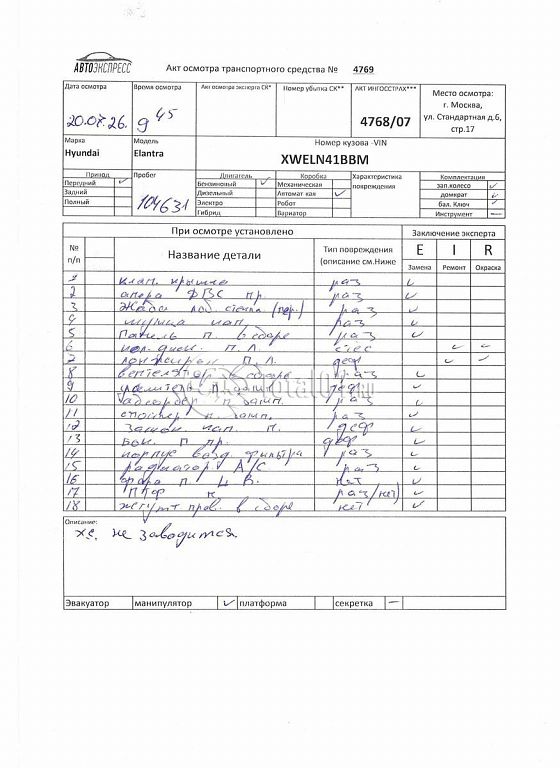 АВТОЭКСПРЕСС
Акт осмотра транспортного средства № 4769
Дата осмотра Время осмотра Акт осмотра эксперта СК* Номер убытка СК** АКТ ИНГОССТРАХ*** Место осмотра:
г. Москва,
20.07.26. 9 45 4768/07 ул. Стандартная д.6,
стр.17
Марка Модель Номер кузова -VIN
Hyundai Elantra XWELN41BBM
Привод Пробег Двигатель Коробка Характеристика повреждения Комплектация
Передний ✓ Бензиновый ✓ Механическая зап.колесо ✓
Задний Дизельный Автомат ✓ домкрат ✓
Полный 104631 Электро Робот бал. Ключ ✓
Гибрид Вариатор Инструмент —
При осмотре установлено Заключение эксперта
№ п/п Название детали Тип повреждения (описание см.Ниже E I R
Замена Ремонт Окраска
1 клап. крышка раз ✓
2 опора ДВС пр раз ✓
3 Жабо под стекла (пер.) раз ✓
4 раз ✓
5 Панель п. в сборе раз ✓
6 п. л. ✓ ✓
7 лонжерон п. л. деф ✓ ✓
8 вентелятор в сборе раз ✓
9 усилитель п. деф ✓
10 абсорбер п бамп. раз ✓
11 спойлер п. бамп. раз ✓
12 кап. п. деф ✓
13 п пр. деф ✓
14 корпус возд. фильтра раз ✓
15 радиатор A/C раз ✓
16 фара п. нет ✓
17 ПТФ раз/нет ✓
18 жгут пров. в сборе нет ✓
Описание:
не заводится.
Эвакуатор манипулятор ✓ платформа секретка —